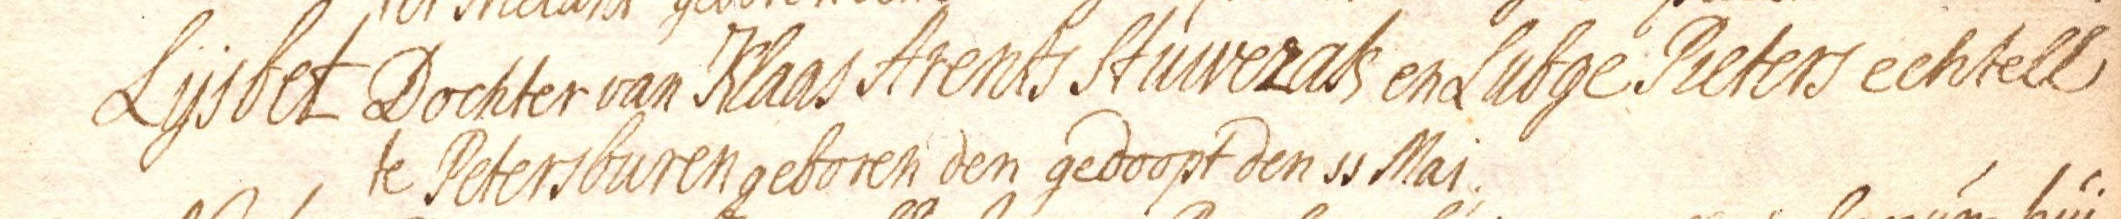 geboren
Lijsbet Dochter van Klaas Arents Stuwezak en Lubge Pieters echtell
te Petersburen geboren den gedoopt den 11 Mai.